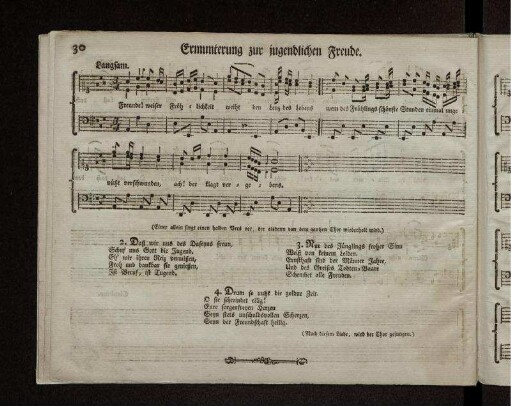 30
Ermunterung zur jugendlichen Freude.
Langsam.
Freunde! weiser Fröh = lichkeit weiht den Lenz des Lebens wenn des Frühlings schönste Stunden einmal unge =
nützt verschwunden, ach! der klagt ver = ge = bens.
(Einer allein singt einen halben Vers vor, der alsdenn von dem ganzen Chor wiederholt wird.)
2. Daß wir uns des Daseyns freun,
Schuf uns Gott die Jugend.
Froh und dankbar sie genießen,
Ist Beruf, ist Tugend.
3. Nur des Jünglings froher Sinn
Weiß von keinem Leiden.
Ernsthaft sind der Männer Jahre,
Und des Greises
Scheuchet alle Freuden.
4. Drum so nutzt die goldne Zeit
O sie schwindet eilig!
Eure sorgenfreyen Herzen
Seyn stets unschuldsvollen Scherzen,
Seyn der Freundschaft heilig.
(Nach diesem Liede, wird der Chor gesungen.)